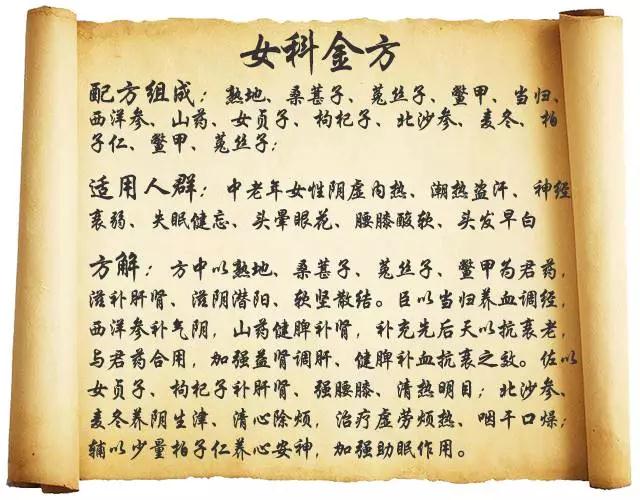 女科金方
配方组成：熟地、桑葚子、菟丝子、鳖甲、当归、
西洋参、山药、女贞子、枸杞子、北沙参、麦冬、柏
子仁、鳖甲、菟丝子；
适用人群：中老年女性阴虚内热、潮热盗汗、神经
衰弱、失眠健忘、头晕眼花、腰膝酸软、头发早白
方解：方中以熟地、桑葚子、菟丝子、鳖甲为君药，
滋补肝肾、滋阴潜阳、软坚散结。臣以当归养血调经，
西洋参补气阴，山药健脾补肾，补充先后天以抗衰老，
与君药合用，加强益肾调肝、健脾补血抗衰之效。佐以
女贞子、枸杞子补肝肾、强腰膝、清热明目；北沙参、
麦冬养阴生津、清心除烦，治疗虚劳烦热、咽干口燥；
辅以少量柏子仁养心安神，加强助眠作用。